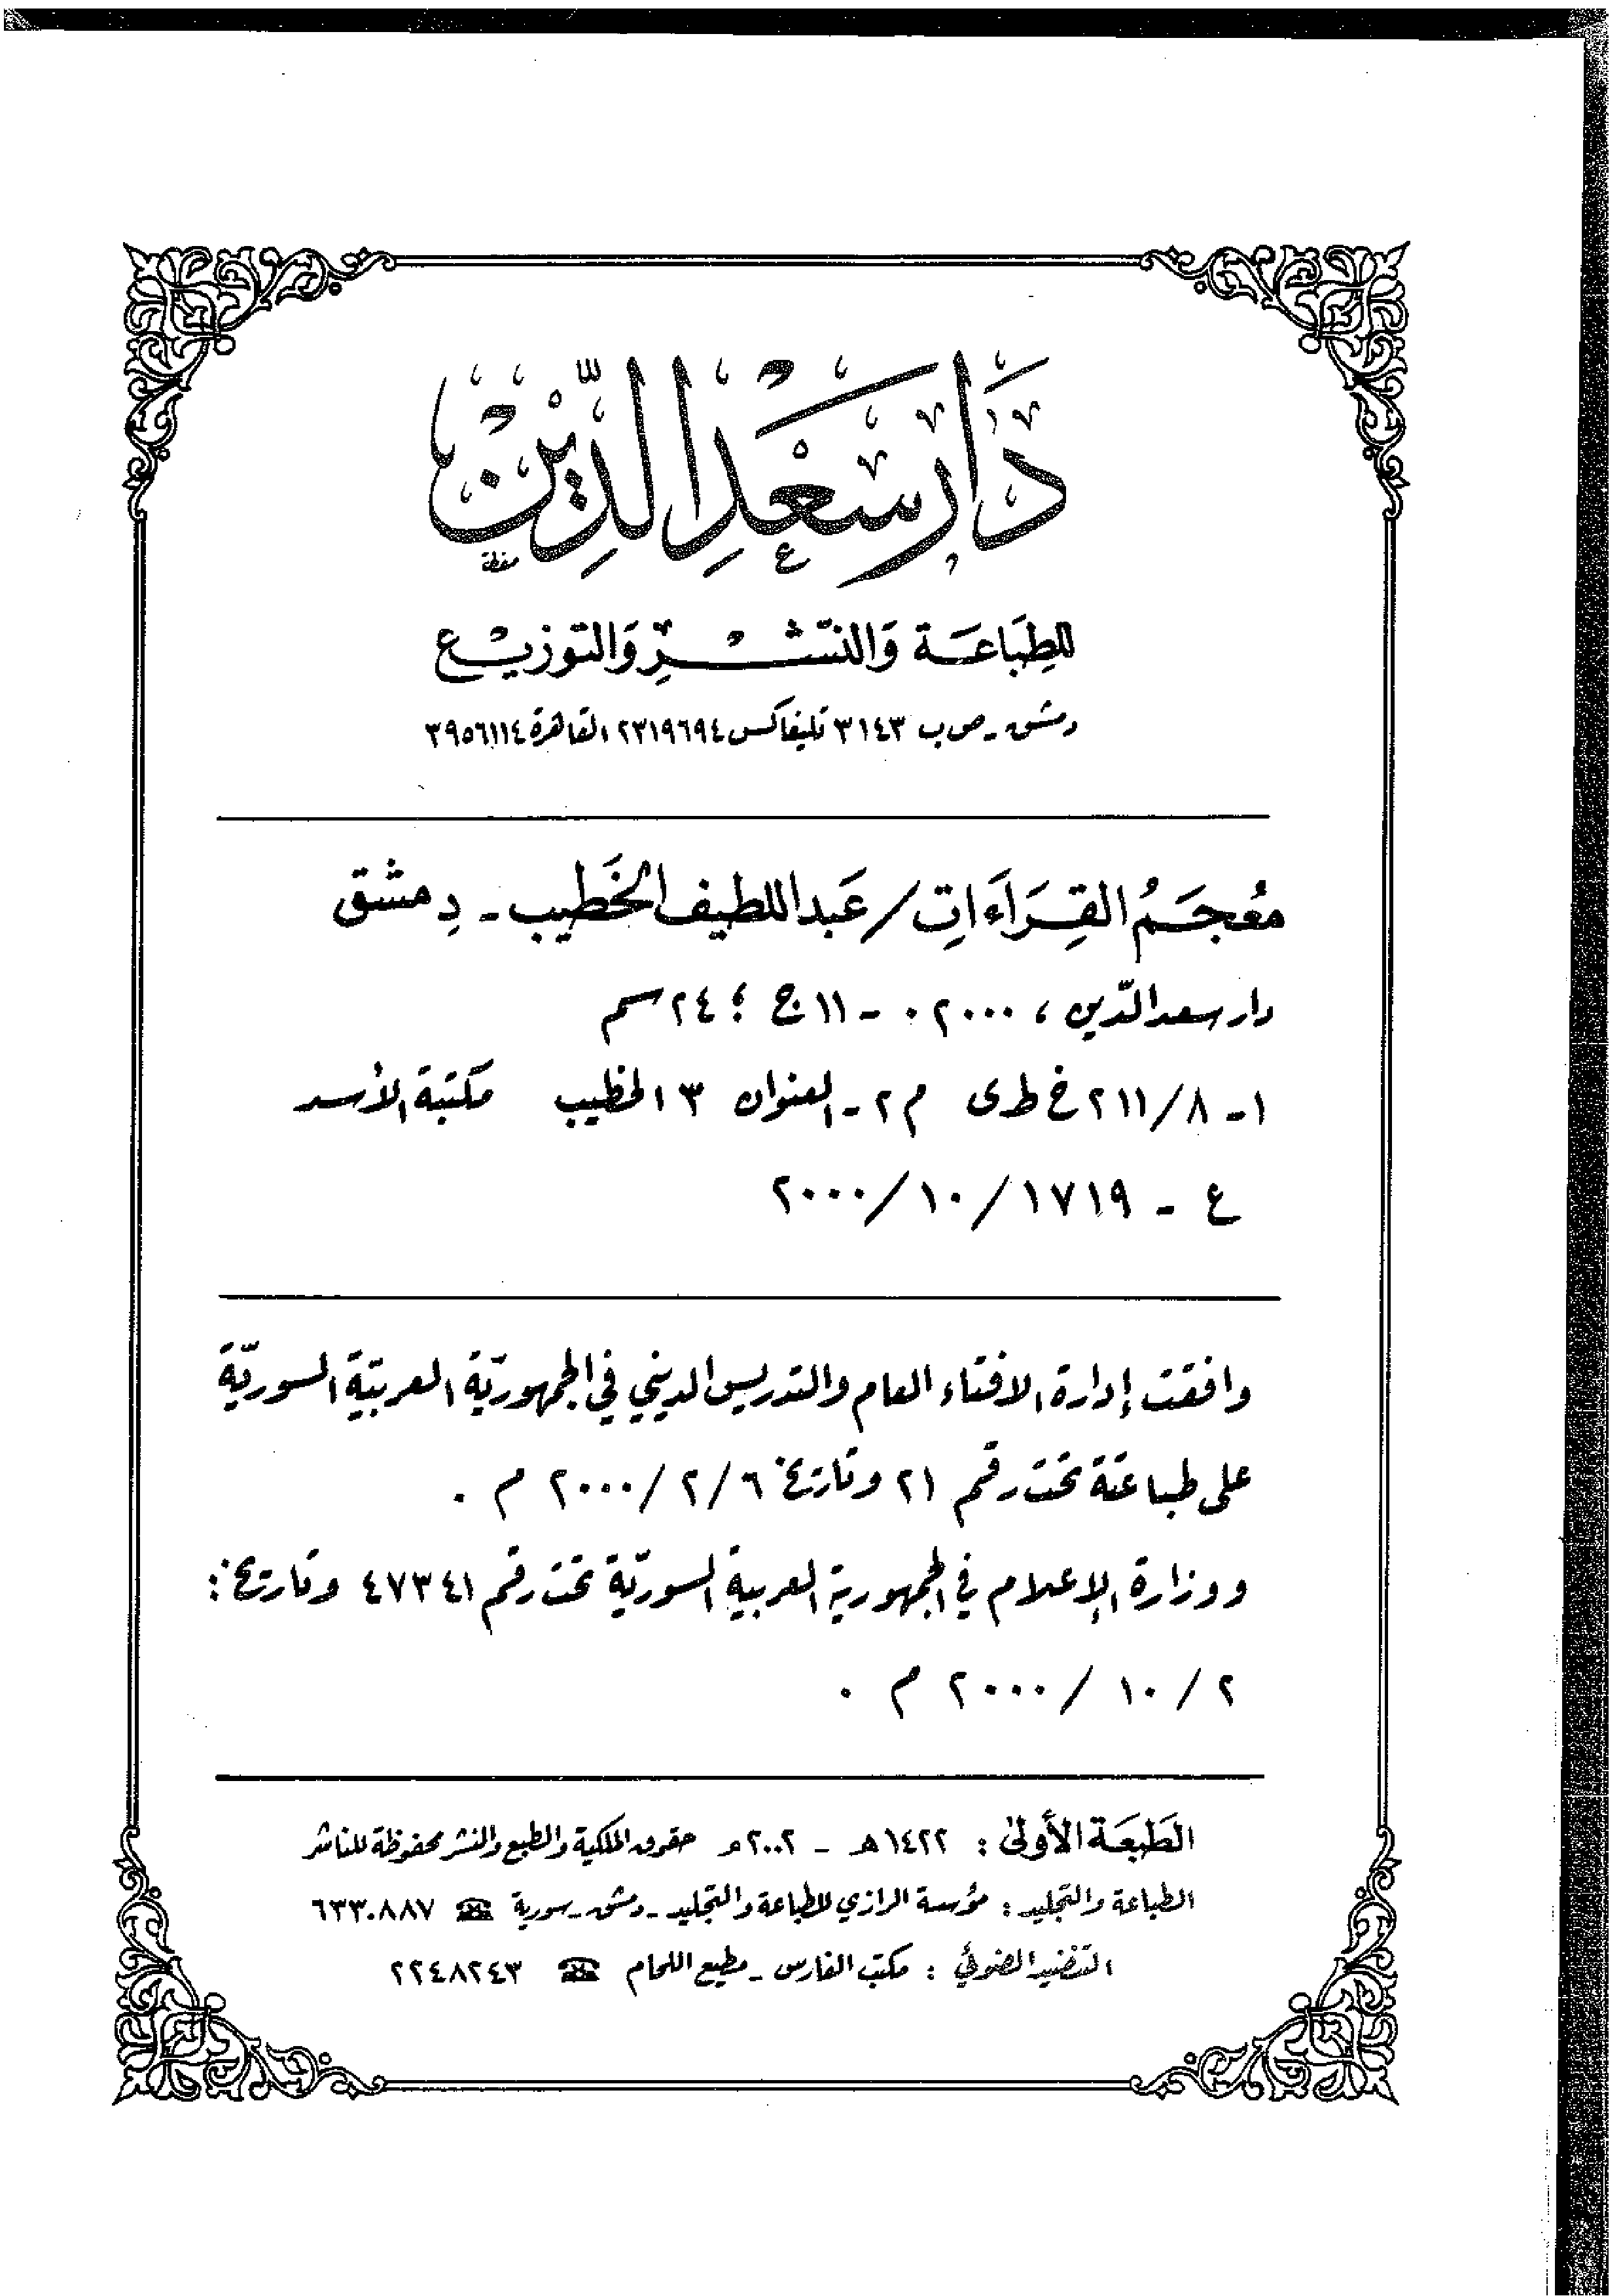 دَار سَعْدِ الدِّيْن
للطِبَاعَة وَالنّشْرِ وَالتوزيْع
دمشق - ص ب ٣١٤٣ تليفاكس ٢٣١٩٦٩٤ القاهرة ٣٩٥٦١١٤
مُعجَمُ القِرَاءَاتِ / عَبد اللطيف الخَطيب - دِمشق
دار سعد الدّين ، ٢٠٠٠ . - ١١ ج ؛ ٢٤ سم
١ - ٢١١/٨ خ ط ى م ٢ - العنوان ٣ الخطيب مكتبة الأسد
ع - ١٧١٩ / ١٠ / ٢٠٠٠
وافقت إدارة الافتاء العام والتدريس الديني في الجمهوريّة العربيّة السوريّة
على طباعتة تحت رقم ٢١ وتاريخ ٦ / ٢ / ٢٠٠٠ م .
ووزارة الإعلام في الجمهورية العربية السوريّة تحت رقم ٤٧٣٤١ وتاريخ :
٢ / ١٠ / ٢٠٠٠ م .
الطَبعَة الأولى : ١٤٢٢ هـ - ٢٠٠٢ م حقوق الملكية والطبع والنشر محفوظة للناشر
الطباعة والتجليد : مؤسسة الرازي للطباعة والتجليد - دمشق - سورية ☎ ٦٣٣٠٨٨٧
التنضيد الضوئي : مكتب الفارس - مطيع اللحام ☎ ٢٢٤٨٢٤٣